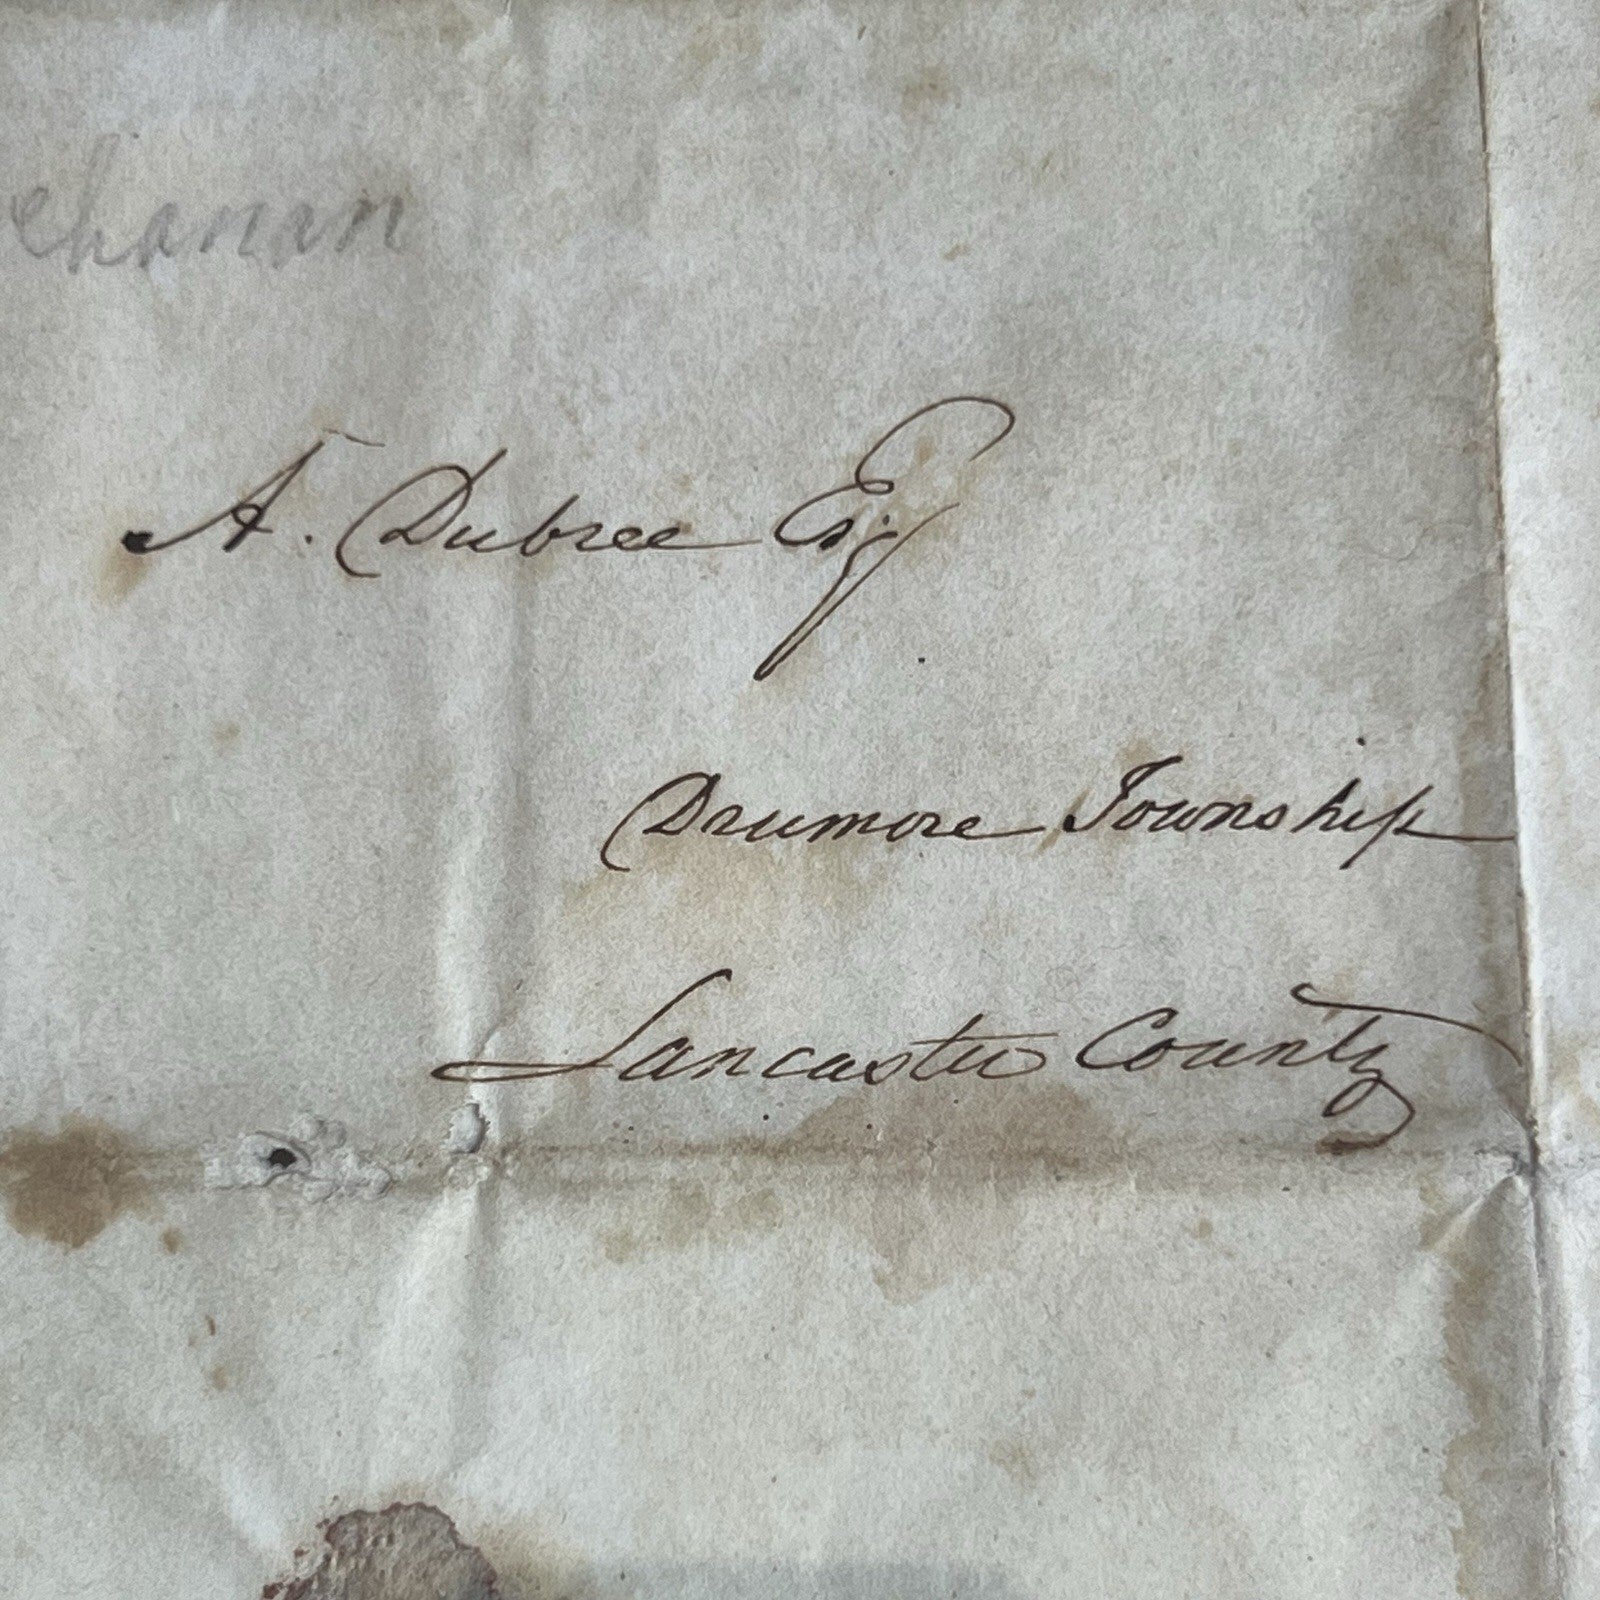 chanan
A. Dubree Esq
Drumore Township
Lancaster County